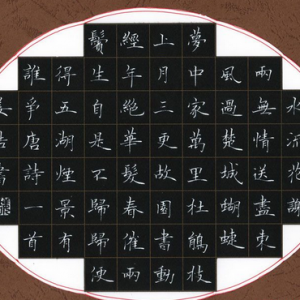 水流花謝
兩無情送盡東
風過楚城蝴蝶
夢中家萬里杜鵑枝
上月三更故園書動
經年絕華髮春催兩
鬢生自是不歸歸便
得五湖煙景有
誰爭唐詩一首
書